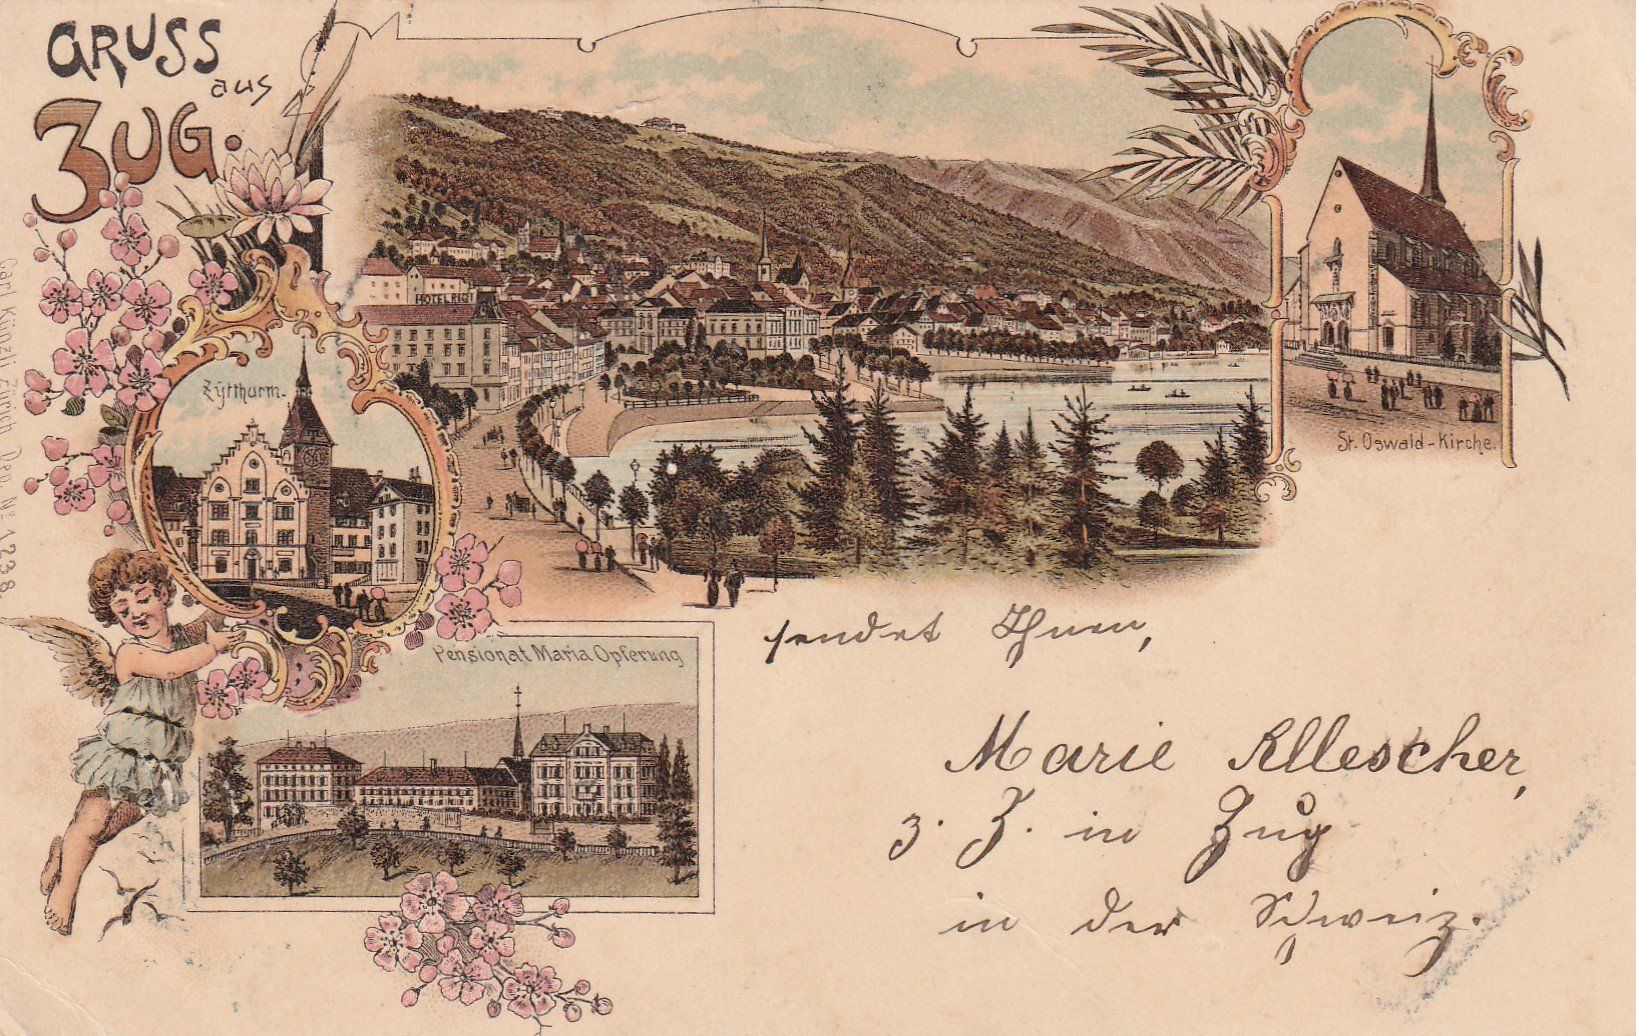 GRUSS
aus
ZUG.
HOTEL RIGI
Zytthurm.
St. Oswald-Kirche.
Pensionat Maria Opferung
Carl Künzli, Zürich Dep. No 1238
sendet Ihnen,
Marie Allescher,
z. Z. in Zug
in der Schweiz.